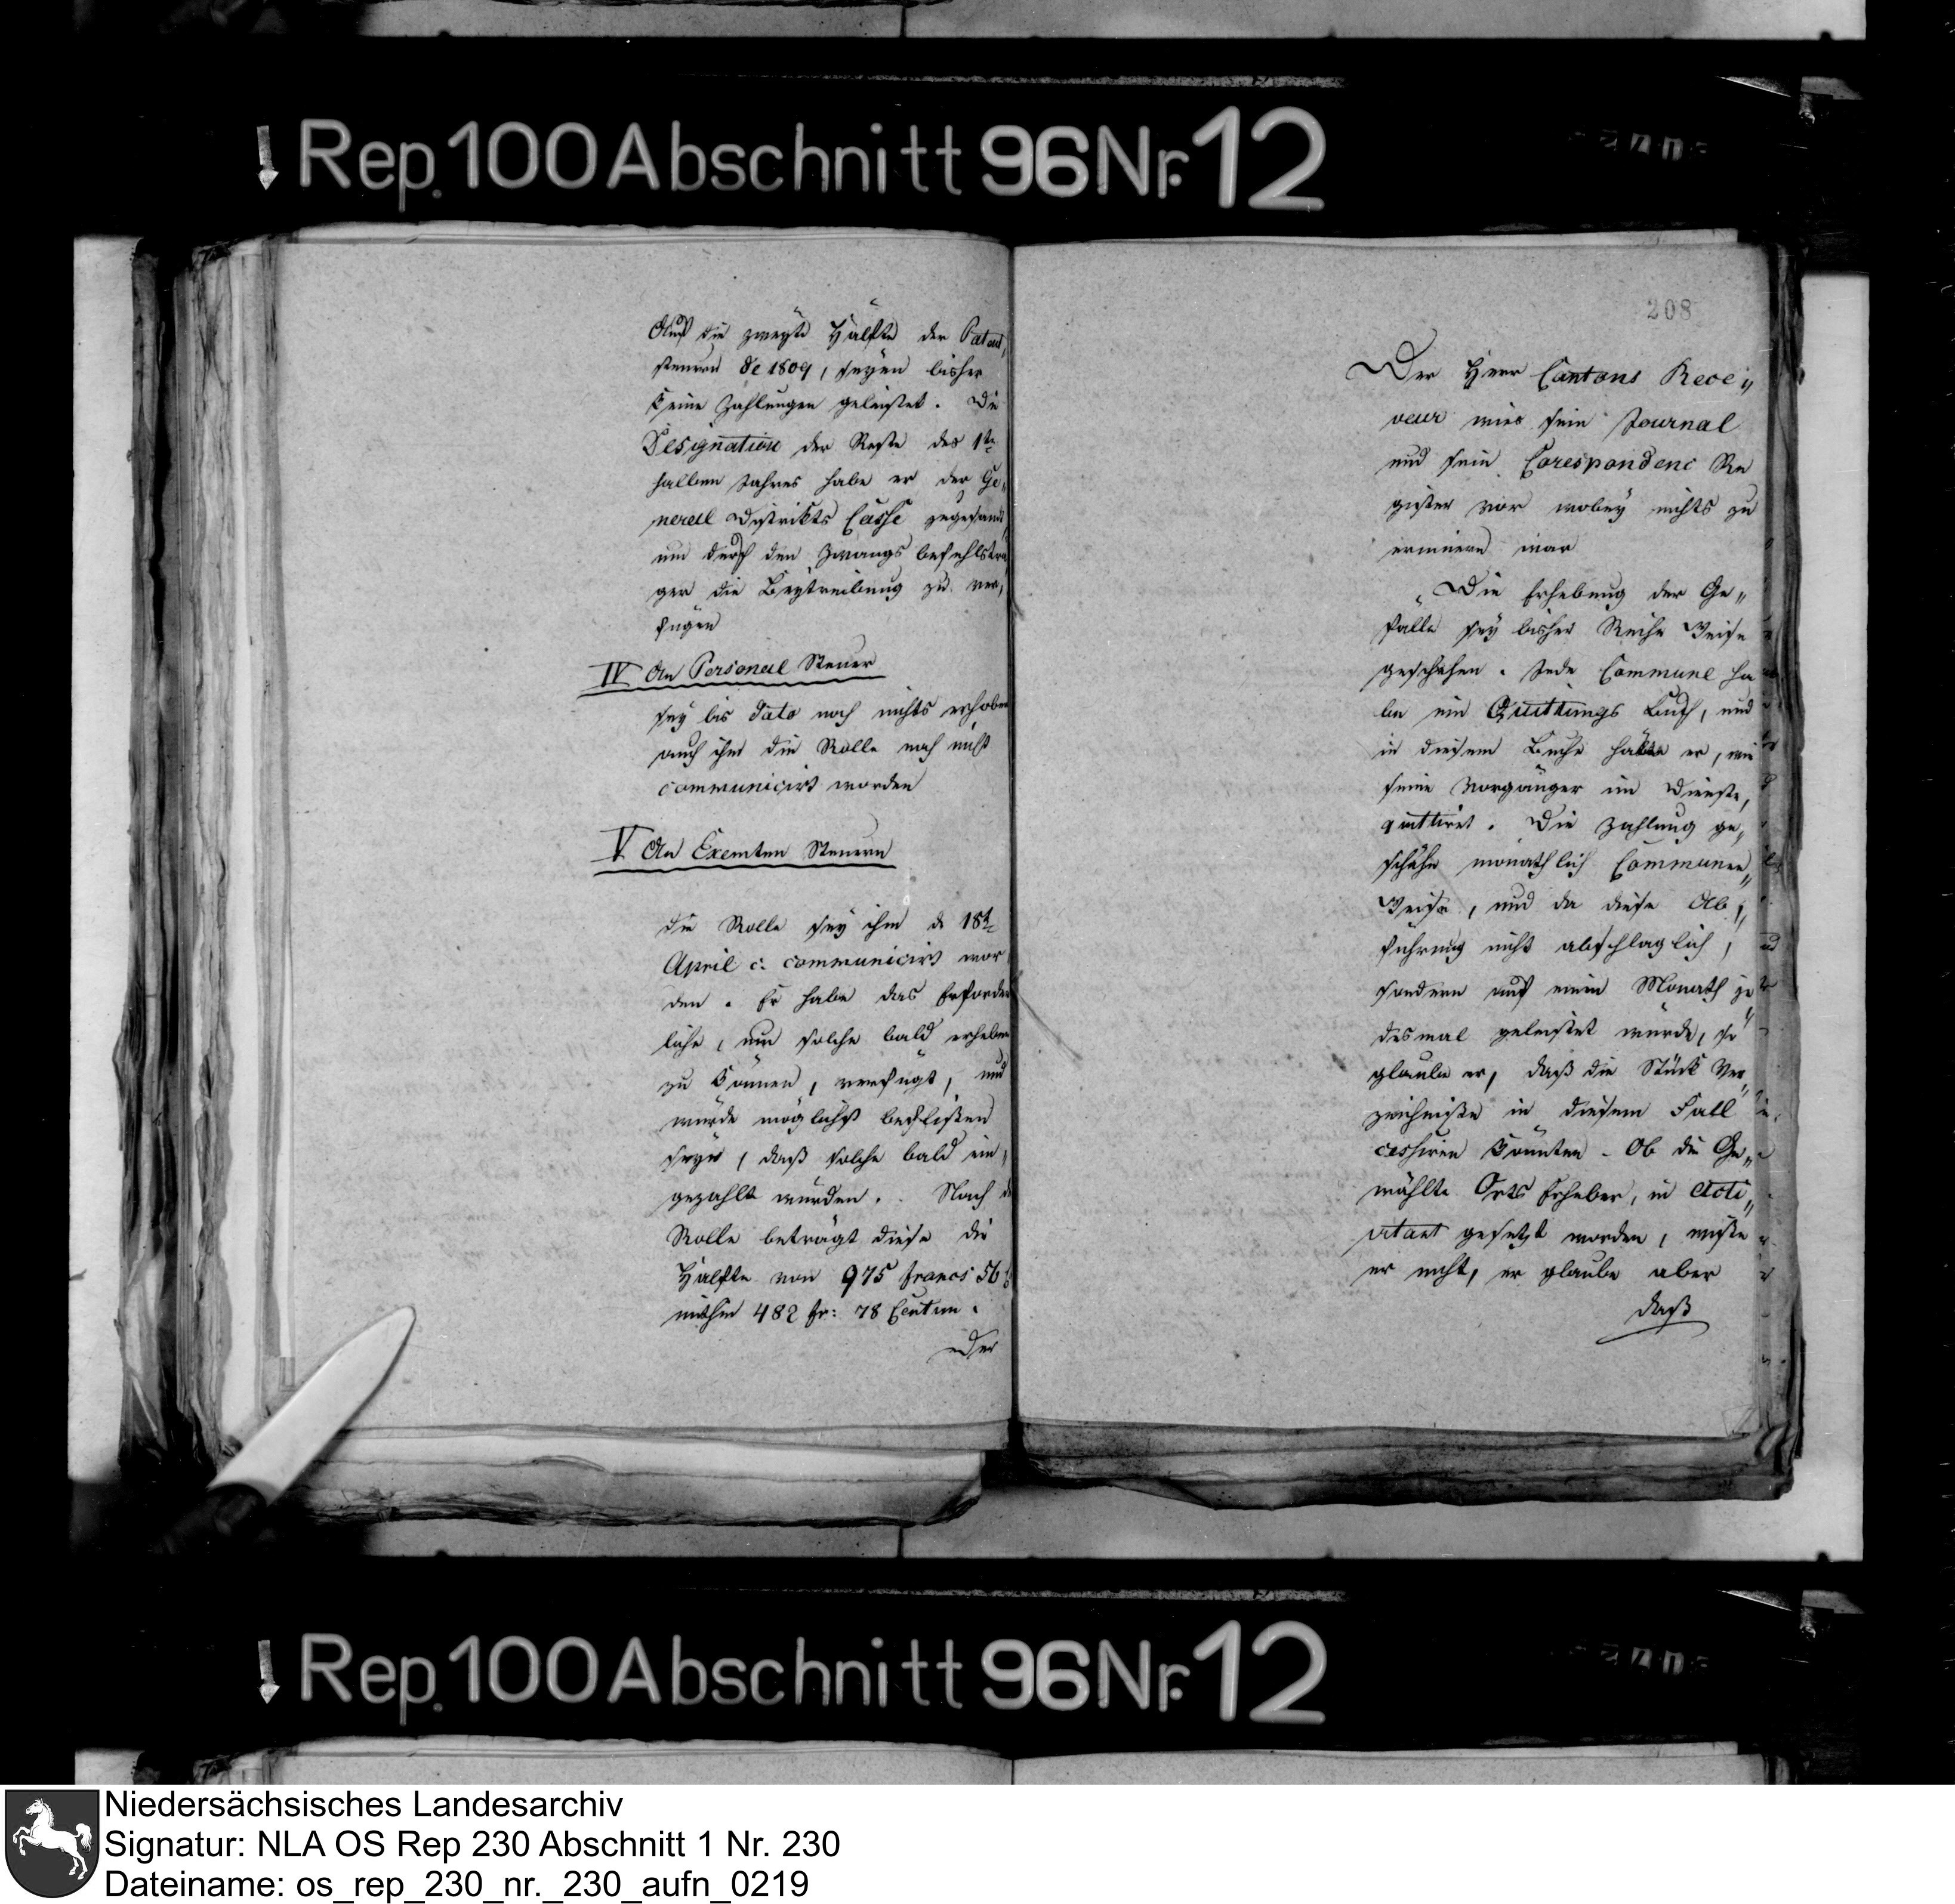 Rep. 100 Abschnitt 96 Nr. 12
Auf die zweyte Hälfte der Patent,
steuern de 1809, seyen bisher
keine Zahlungen geleistet. Die
Designation der Reste des 1ten
halben Jahres habe er der Ge„
neral Distrikts Casse zugesandt,
um durch den Zwangsbefehlsträ
ger die Beytreibung zu ver,
fügen
IV An Personal Steuer
sey bis dato noch nichts erhoben
auch ihm die Rolle noch nicht
communicirt worden
V An Exemten Steuern
die Rolle sey ihm d 18t
April c. communicirt wor
den. Er habe das Erforder
liche, um solche bald erheben
zu können, verfügt, und
würde möglichst beflißen
seyn, daß solche bald ein,
gezahlt würden. Nach d
Rolle beträgt diese die
Hälfte von 975 francs 56
mithin 482 fr: 78 Centim.
Der
208
Der Herr Cantons Recei„
veur wies sein Journal
und sein Corespondenc Re
gister vor wobey nichts zu
erinnern war
Die Erhebung der Ge„
fälle sey bisher Reihe Weise
geschehen. Jede Commune ha
be ein Quittungs Buch, und
in diesem Buche habe er, wie
seine Vorgänger im Dienste,
quittiret. Die Zahlung ge„
schähe monathlich Communen„
Weise, und da diese Ab„
führung nicht abschlaglich,
sondern auf einen Monath je„
desmal geleistet würde, so
glaube er, daß die Stück Ver„
zeichniße in diesem Fall
cessiren könnten. Ob die Ge„
wählte Orts Erheber, in Acti„
vitaet gesetzt worden, wiße
er nicht, er glaube aber
daß
Rep. 100 Abschnitt 96 Nr. 12
Niedersächsisches Landesarchiv
Signatur: NLA OS Rep 230 Abschnitt 1 Nr. 230
Dateiname: os_rep_230_nr._230_aufn_0219